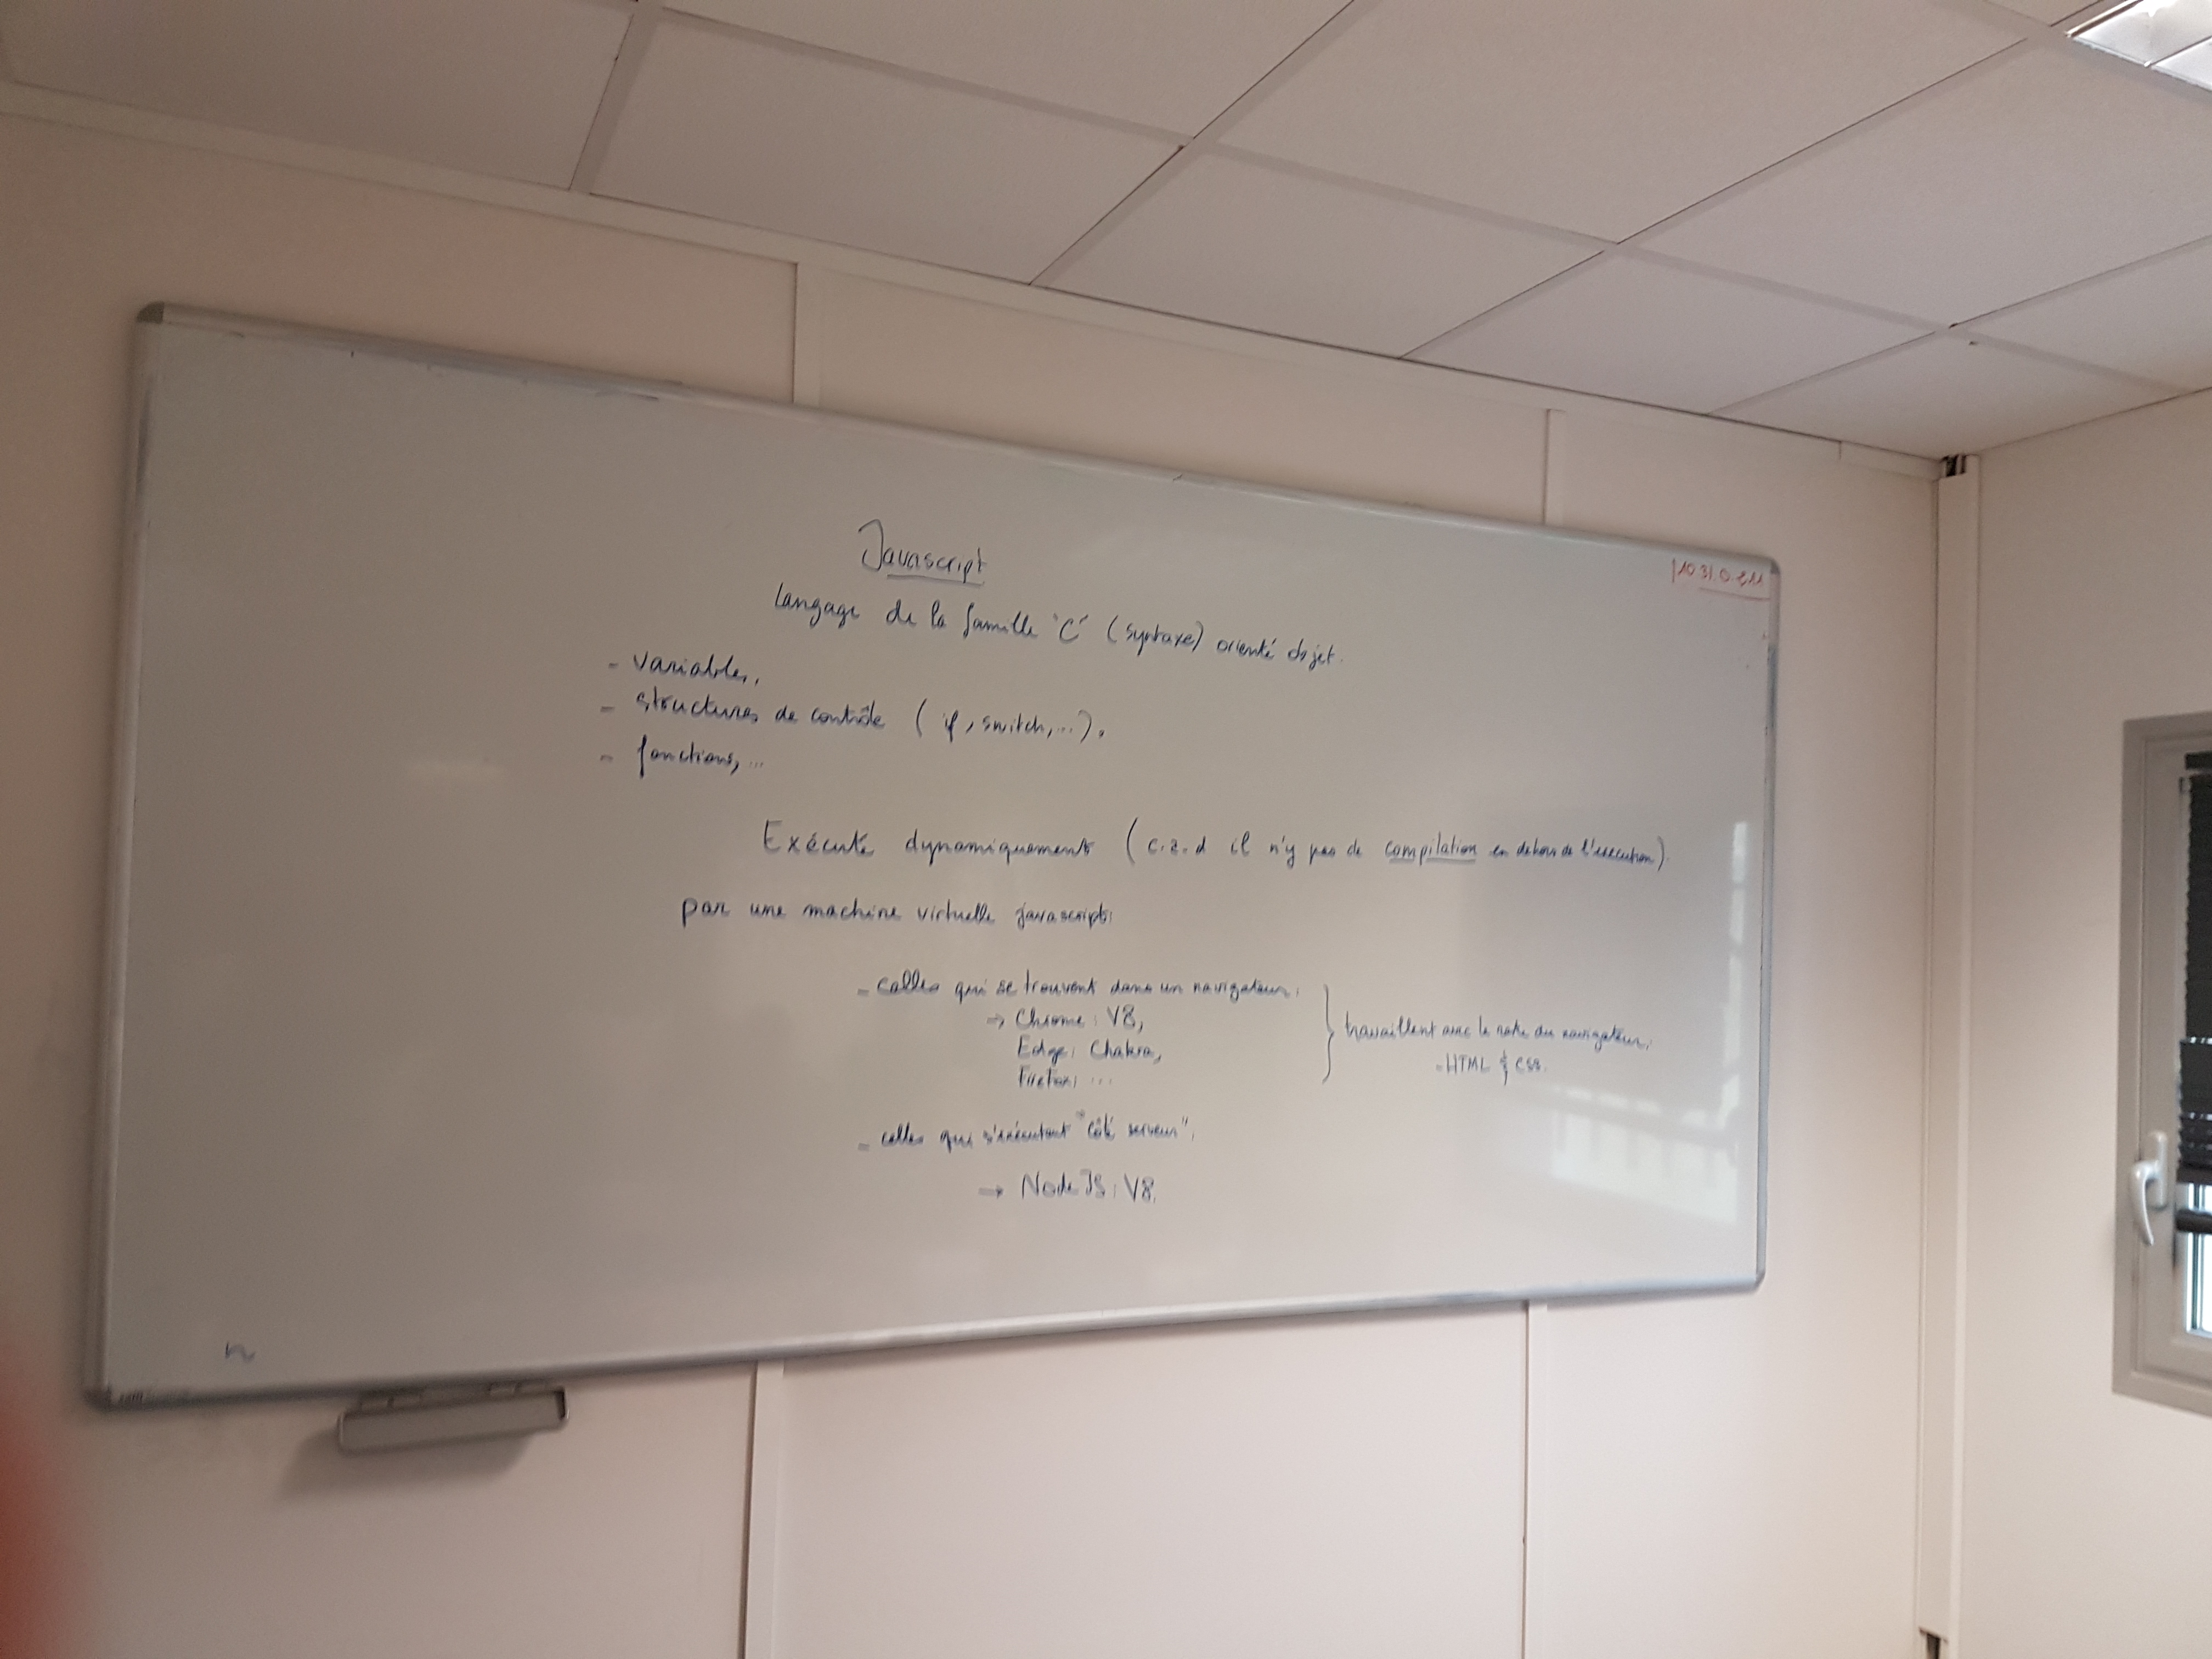 Javascript
Langage de la famille "C" (syntaxe) orienté objet.
- variables,
- structures de contrôle (if, switch,...),
- fonctions,...
Exécuté dynamiquement (c.à.d il n'y pas de compilation en dehors de l'exécution).
par une machine virtuelle javascript:
- celles qui se trouvent dans un navigateur:
→ Chrome: V8,
Edge: Chakra,
Firefox: ...
travaillent avec le reste du navigateur:
- HTML & CSS.
- celles qui s'exécutent "côté serveur",
→ NodeJS: V8.